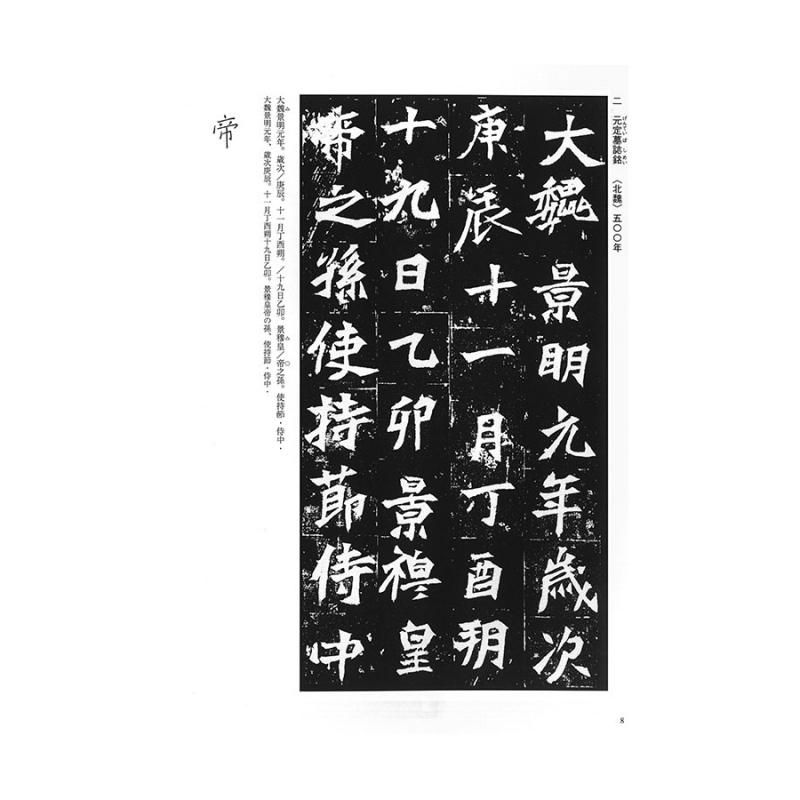 二　元定墓誌銘　《北魏》　五〇〇年
げんていぼしめい
大魏景明元年歳次
庚辰十一月丁酉朔
十九日乙卯景穆皇
帝之孫使持節侍中
大魏景明元年。歳次／庚辰。十一月丁酉朔。／十九日乙卯。景穆皇／帝之孫。使持節・侍中・
大魏景明元年、歳次庚辰。十一月丁酉朔十九日乙卯。景穆皇帝の孫、使持節・侍中・
帝
8